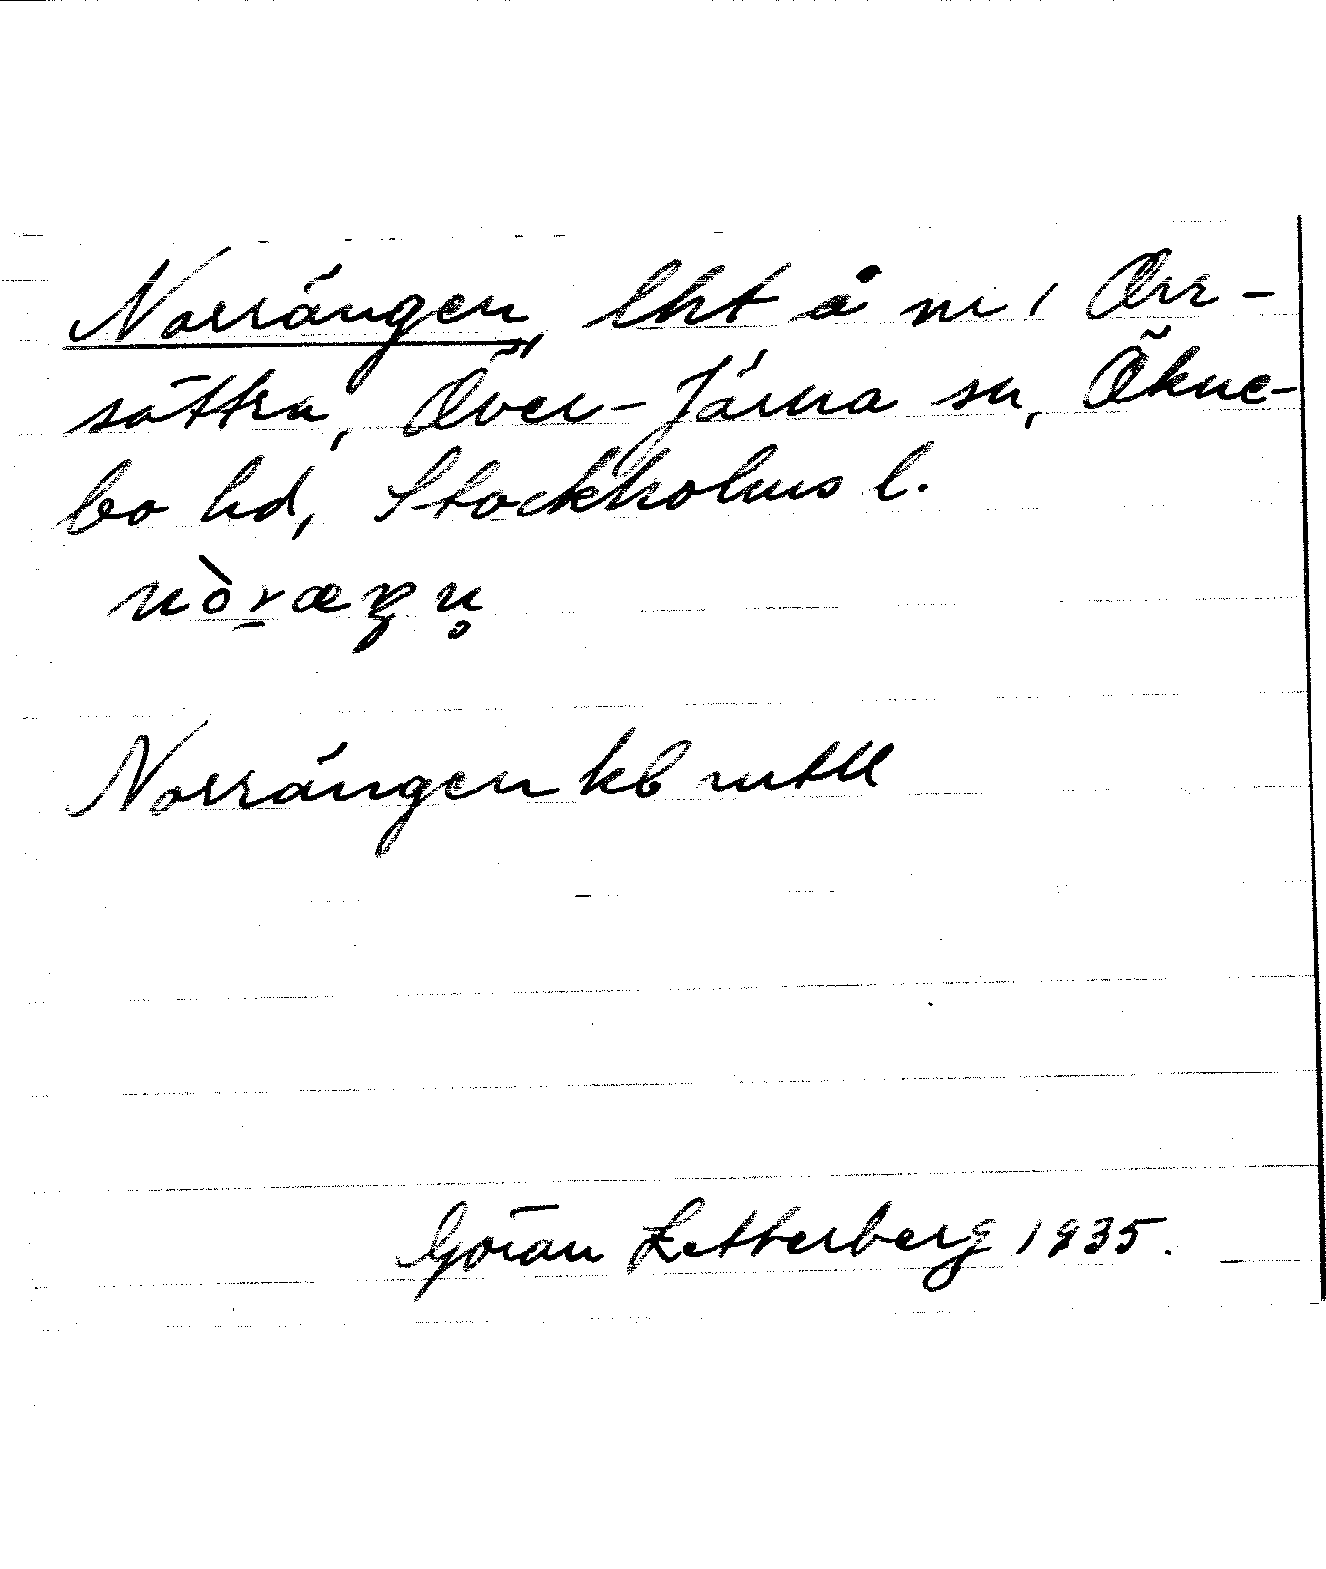 Norrängen, lht å nr 1 Orr-
sättra, Över-Järna sn, Ökne-
bo hd, Stockholms l.
nòræŋn̥
Norrängen kb mtll
Göran Zetterberg 1935.